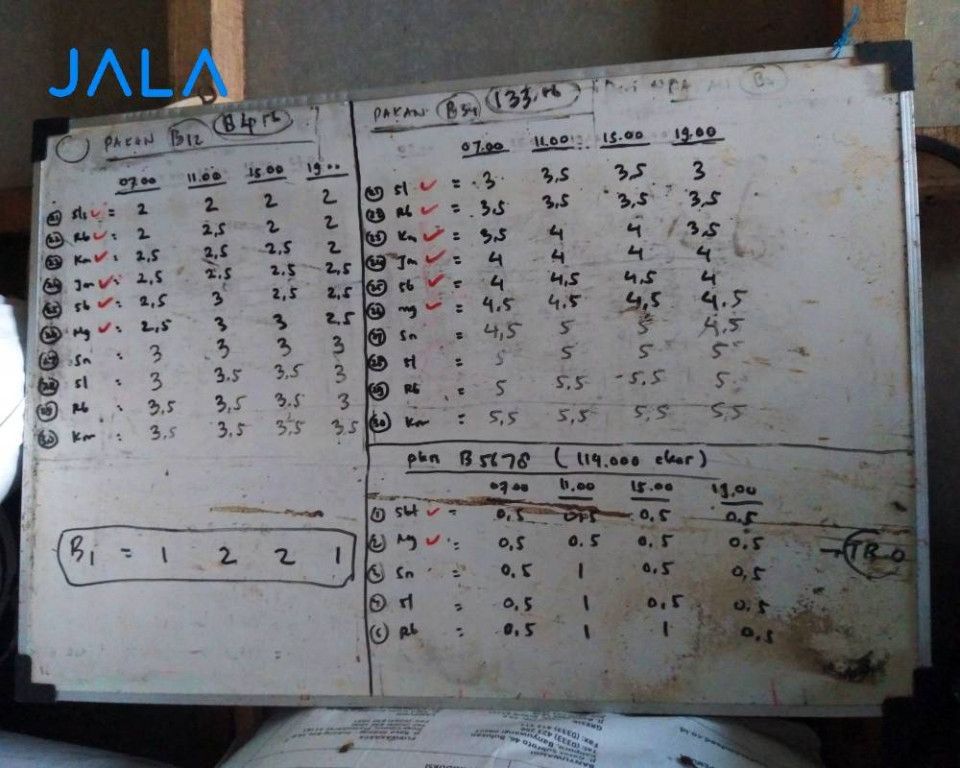 JALA
PAKAN B12 84 rb
07.00 11.00 15.00 19.00
21 Sls ✓ = 2 2 2 2
22 Rb ✓ : 2 2,5 2 2
23 Km ✓ : 2,5 2,5 2,5 2
24 Jm ✓ : 2,5 2,5 2,5 2,5
25 Sb ✓ : 2,5 3 2,5 2,5
26 Mg ✓ : 2,5 3 3 2,5
27 Sn : 3 3 3 3
28 Sl : 3 3,5 3,5 3
29 Rb : 3,5 3,5 3,5 3
30 Km : 3,5 3,5 3,5 3,5
B1 = 1 2 2 1
PAKAN B34 133.rb
07.00 11.00 15.00 19.00
21 Sl ✓ = 3 3,5 3,5 3
22 Rb ✓ = 3,5 3,5 3,5 3,5
23 Km ✓ = 3,5 4 4 3,5
24 Jm ✓ = 4 4 4 4
25 Sb ✓ = 4 4,5 4,5 4
26 Mg ✓ = 4,5 4,5 4,5 4,5
27 Sn = 4,5 5 5 4,5
28 Sl = 5 5 5 5
29 Rb = 5 5,5 5,5 5
30 Km = 5,5 5,5 5,5 5,5
pkn B5678 (114.000 ekor)
07.00 11.00 15.00 19.00
1 Sbt ✓ = 0,5 0,5 0,5 0,5
2 Mg ✓ = 0,5 0.5 0,5 0,5
3 Sn = 0,5 1 0,5 0,5
4 Sl = 0,5 1 0,5 0.5
5 Rb = 0,5 1 1 0,5